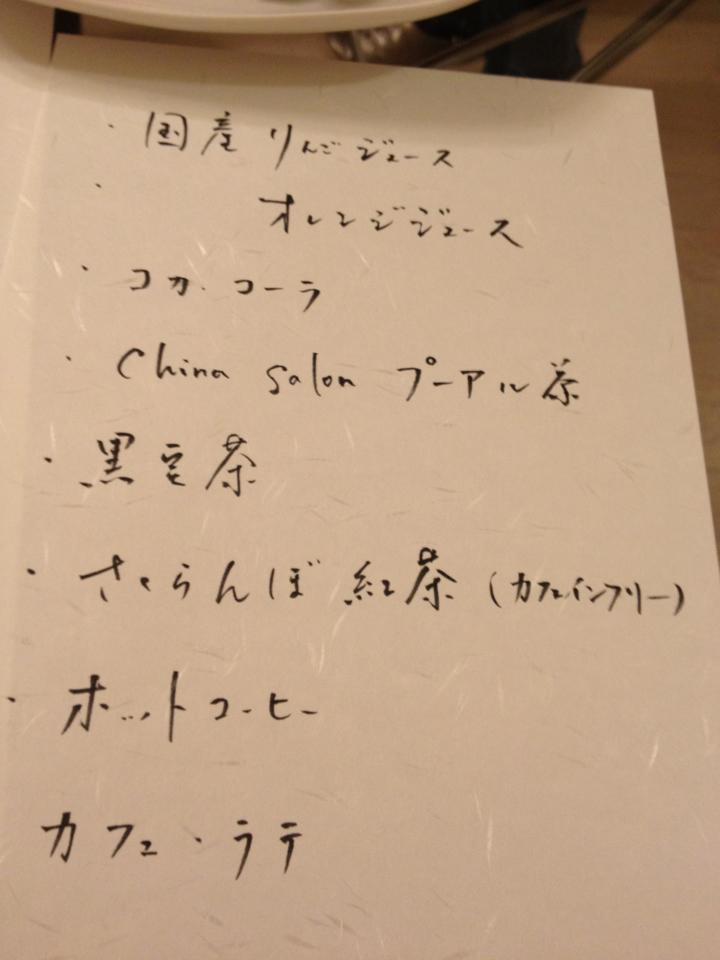 ・国産 りんごジュース
・ オレンジジュース
・コカ・コーラ
・China Salon プーアル茶
・黒豆茶
・さくらんぼ紅茶(カフェインフリー)
・ホットコーヒー
カフェ・ラテ